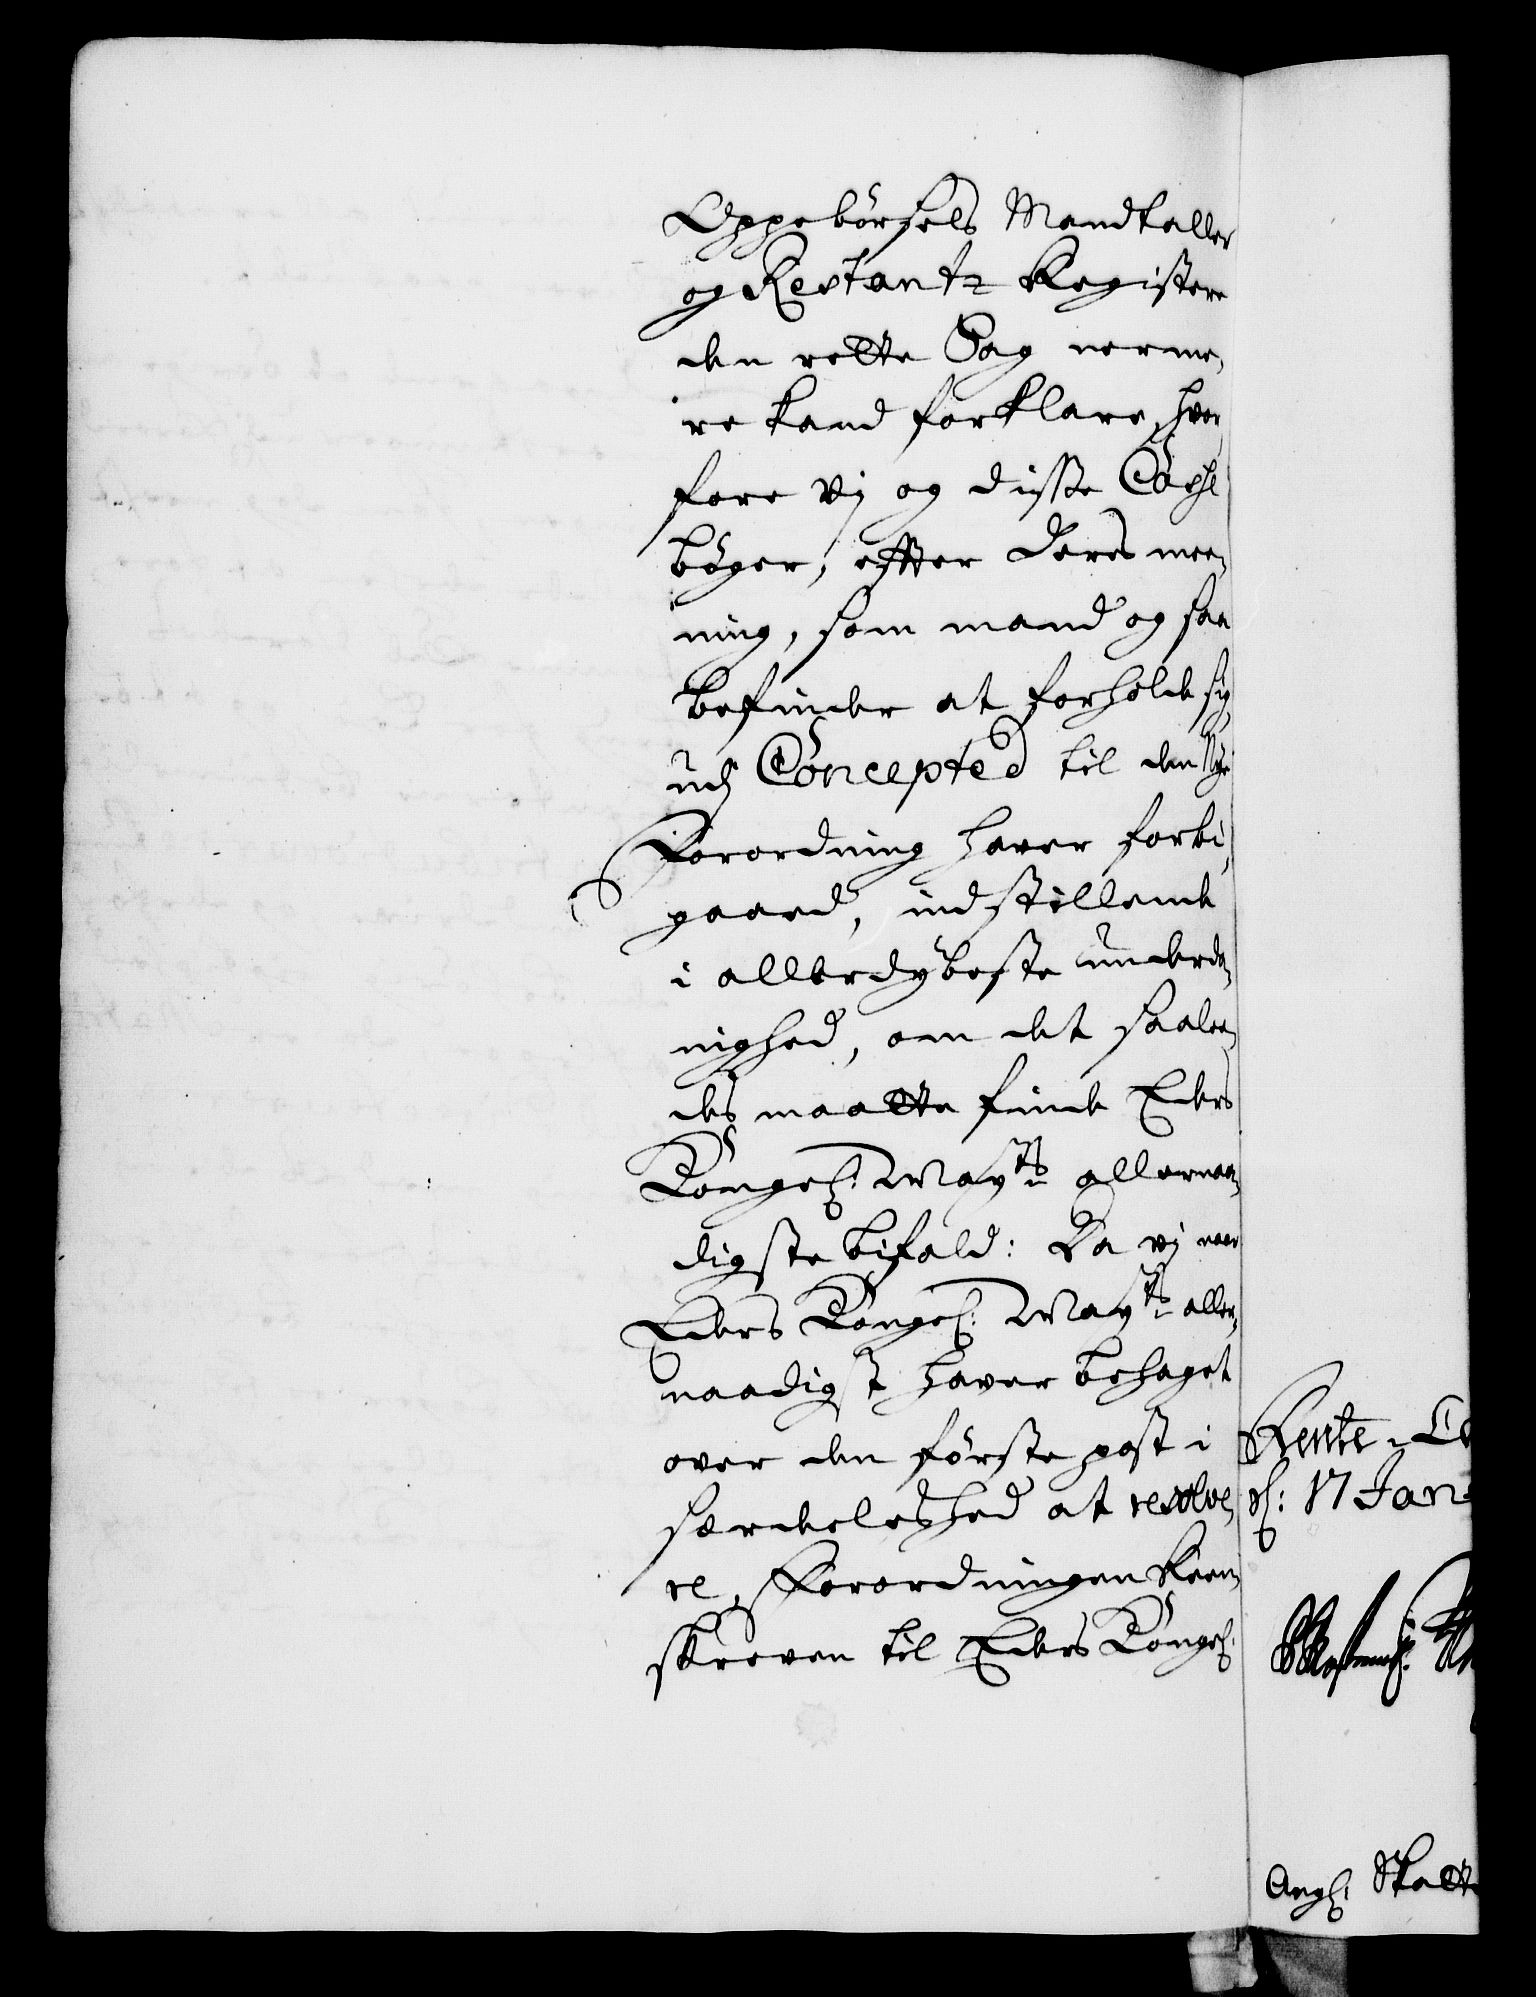 Oppebörsels Mandtaller
og Restantz Registere
den rette Sag nerme,
re kand forklare, hvor,
fore vj og disse
böger, effter deres mee,
ning, som mand og saa
befinder at forholde sig,
udj Concepted til den Nye
Forordning haver forbi,
gaaed, indstillende
i allerdybeste underda,
nighed, om det saalee,
des maatte finde Eders
Kongel: Mayts allernaa,
digste bifald: Da vj naar
Eders Kongel: Mayts aller,
naadigst haver behaget
over den förste post i
særdeleshed at resolve,
re, Forordningen Reen,
skreven til Eders Kongel:
Rente-C
d: 17 Jan
Angl: Skatt